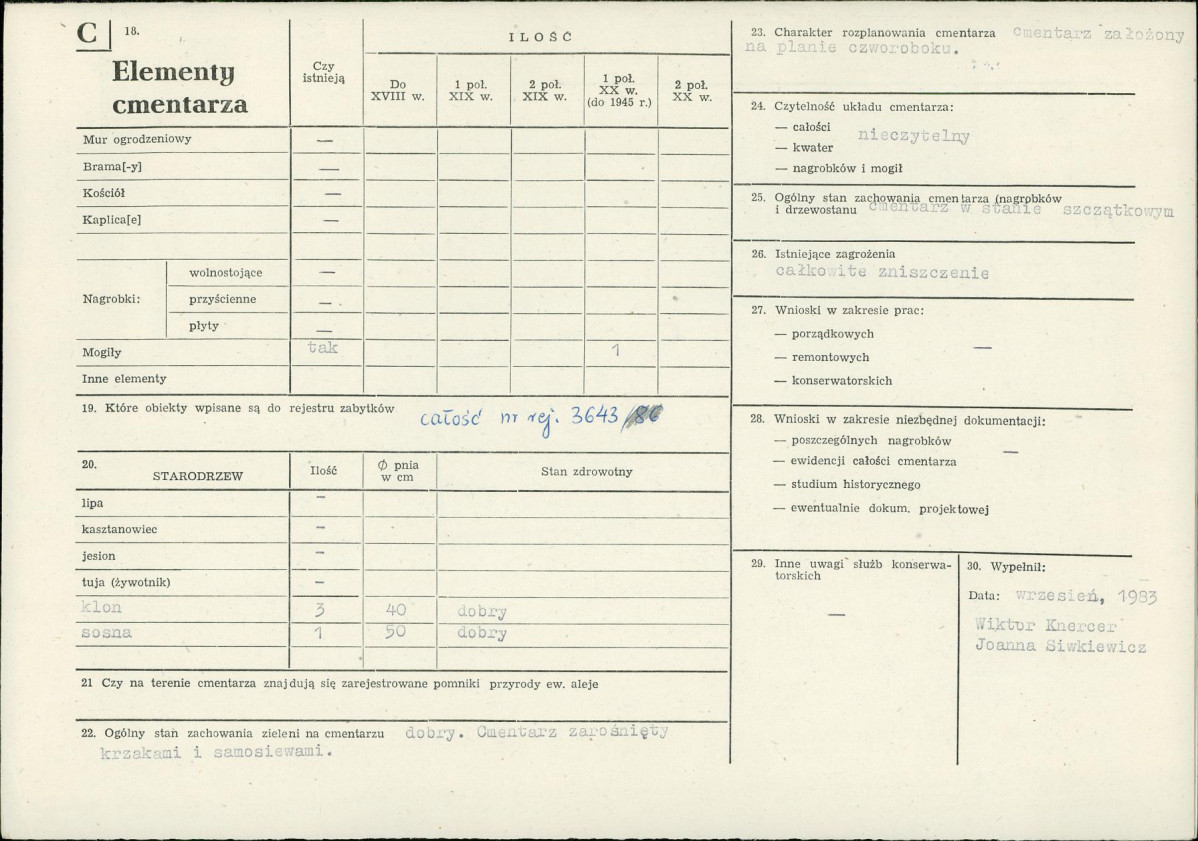 C 18.
Elementy
cmentarza
Czy
istnieją
ILOŚĆ
Do
XVIII w.
1 poł.
XIX w.
2 poł.
XIX w.
1 poł.
XX w.
(do 1945 r.)
2 poł.
XX w.
Mur ogrodzeniowy —
Brama[-y] —
Kościół —
Kaplica[e] —
Nagrobki:
wolnostojące —
przyścienne —
płyty —
Mogiły tak 1
Inne elementy
19. Które obiekty wpisane są do rejestru zabytków całość nr rej. 3643
20.
STARODRZEW
Ilość
Ø pnia
w cm
Stan zdrowotny
lipa —
kasztanowiec —
jesion —
tuja (żywotnik) —
klon 3 40 dobry
sosna 1 50 dobry
21 Czy na terenie cmentarza znajdują się zarejestrowane pomniki przyrody ew. aleje
22. Ogólny stan zachowania zieleni na cmentarzu dobry. Cmentarz zarośnięty
krzakami i samosiewami.
23. Charakter rozplanowania cmentarza cmentarz założony
na planie czworoboku.
24. Czytelność układu cmentarza:
— całości
nieczytelny
— kwater
— nagrobków i mogił
25. Ogólny stan zachowania cmentarza (nagrobków
i drzewostanu cmentarz w stanie szczątkowym
26. Istniejące zagrożenia
całkowite zniszczenie
27. Wnioski w zakresie prac:
— porządkowych
—
— remontowych
— konserwatorskich
28. Wnioski w zakresie niezbędnej dokumentacji:
— poszczególnych nagrobków
—
— ewidencji całości cmentarza
— studium historycznego
— ewentualnie dokum. projektowej
29. Inne uwagi służb konserwa-
torskich
—
30. Wypełnił:
Data: wrzesień, 1983
Wiktor Knercer
Joanna Siwkiewicz